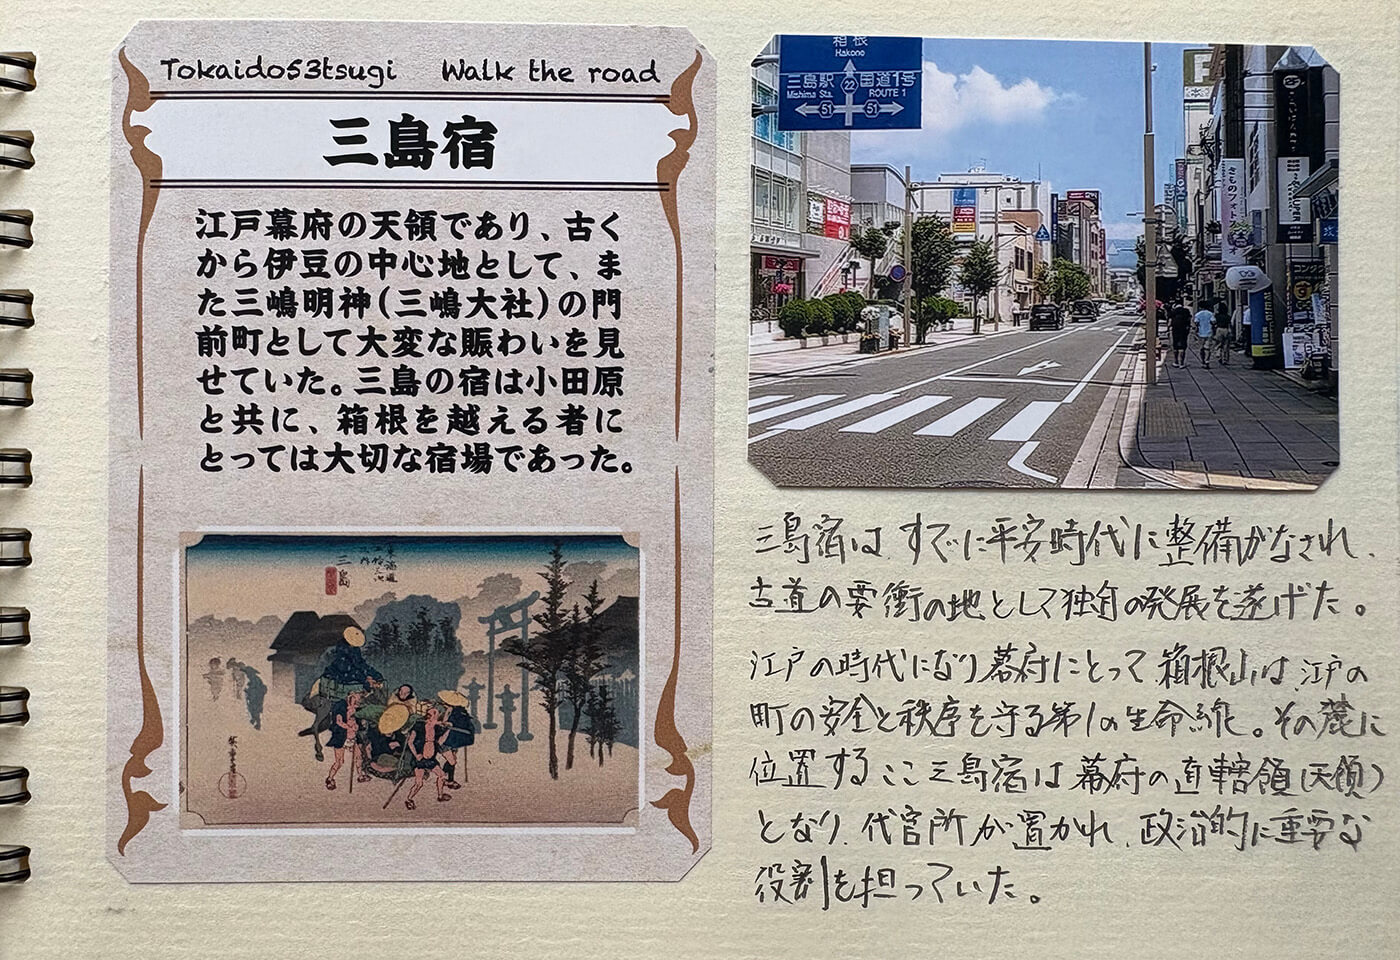 Tokaido53tsugi Walk the road
三島宿
江戸幕府の天領であり、古く
から伊豆の中心地として、ま
た三嶋明神(三嶋大社)の門
前町として大変な賑わいを見
せていた。三島の宿は小田原
と共に、箱根を越える者に
とっては大切な宿場であった。
三島
箱根
Hakone
三島駅 22 国道1号
Mishima Sta. ROUTE 1
51 51
きものフォト
三島宿は、すでに平安時代に整備がなされ、
古道の要衝の地として独自の発展を遂げた。
江戸の時代になり幕府にとって箱根山は、江戸の
町の安全と秩序を守る第1の生命線。その麓に
位置するここ三島宿は幕府の直轄領(天領)
となり、代官所が置かれ、政治的に重要な
役割を担っていた。